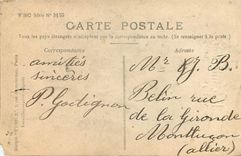 CARTE POSTALE
Tous les pays étrangers n'acceptent pas la correspondance au recto. (Se renseigner à la poste)
Correspondance
Adresse
amitiés
sincères
P. Goetignon
Mr J. B.
Belin rue
de la Gironde
Montluçon
(allier)